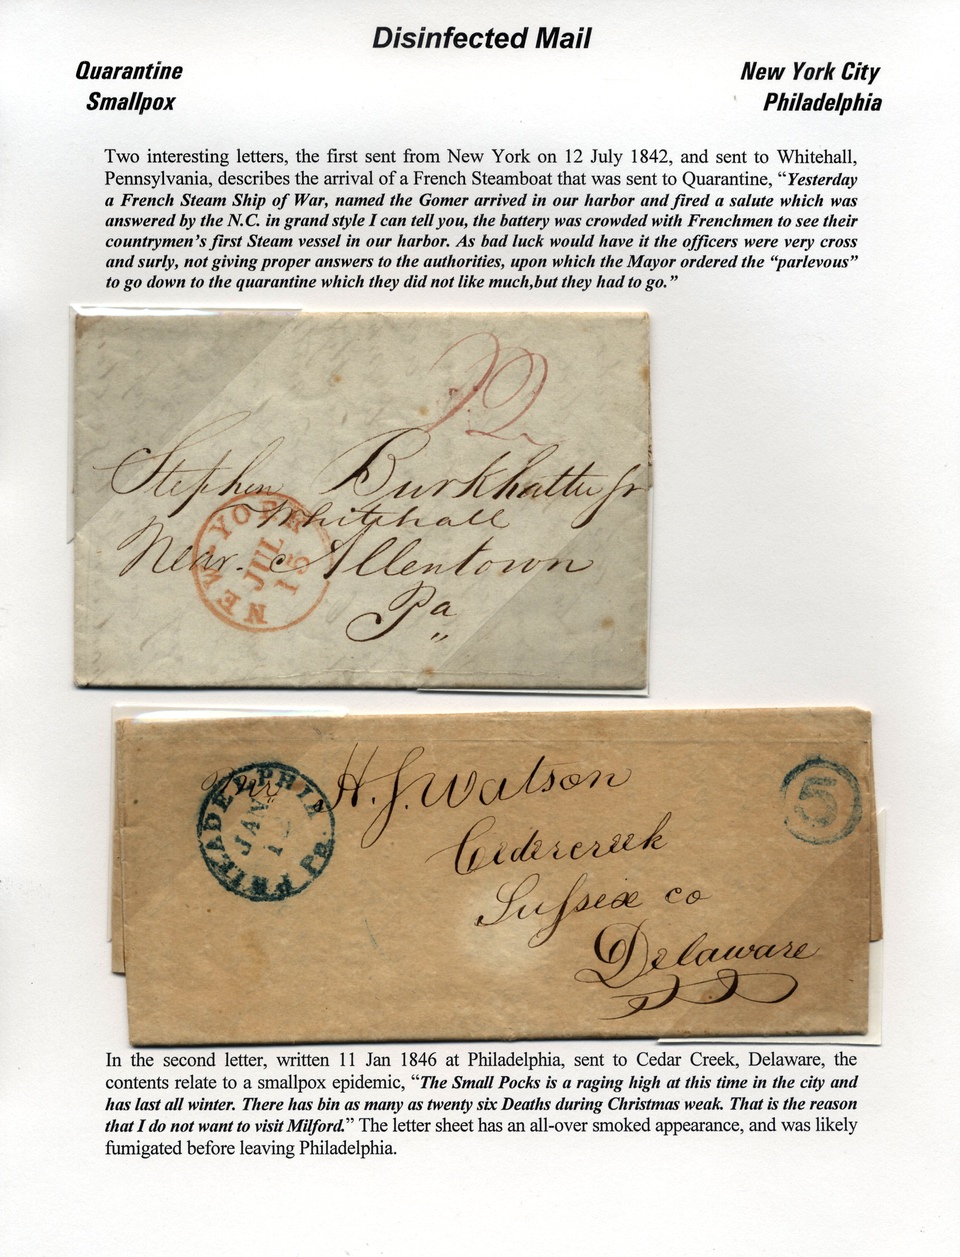 Disinfected Mail
Quarantine
Smallpox
New York City
Philadelphia
Two interesting letters, the first sent from New York on 12 July 1842, and sent to Whitehall,
Pennsylvania, describes the arrival of a French Steamboat that was sent to Quarantine, “Yesterday
a French Steam Ship of War, named the Gomer arrived in our harbor and fired a salute which was
answered by the N.C. in grand style I can tell you, the battery was crowded with Frenchmen to see their
countrymen’s first Steam vessel in our harbor. As bad luck would have it the officers were very cross
and surly, not giving proper answers to the authorities, upon which the Mayor ordered the “parlevous”
to go down to the quarantine which they did not like much,but they had to go.”
Stephen Burkhalter Jr
Whitehall
Near. Allentown
Pa
NEW-YORK
JUL
13
PHILADELPHIA Pa.
JAN
Mr H. J. Watson
5
Cedercreek
Sussex co
Delaware
In the second letter, written 11 Jan 1846 at Philadelphia, sent to Cedar Creek, Delaware, the
contents relate to a smallpox epidemic, “The Small Pocks is a raging high at this time in the city and
has last all winter. There has bin as many as twenty six Deaths during Christmas weak. That is the reason
that I do not want to visit Milford.” The letter sheet has an all-over smoked appearance, and was likely
fumigated before leaving Philadelphia.